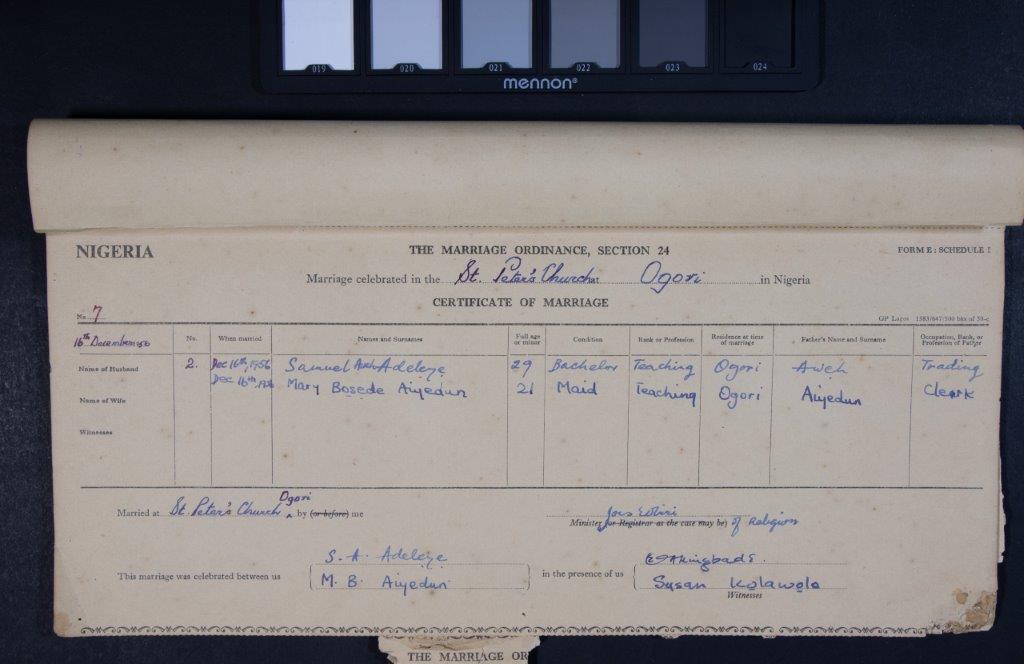 019 020 021 022 023 024
mennon®
NIGERIA THE MARRIAGE ORDINANCE, SECTION 24 FORM E: SCHEDULE I
Marriage celebrated in the St. Peter's Church at Ogori in Nigeria
CERTIFICATE OF MARRIAGE
No 7 GP Lagos 1583/647/500 bks of 50-c
16th December 1956 No. When married Names and Surnames Full age or minor Condition Rank or Profession Residence at time of marriage Father's Name and Surname Occupation, Rank, or Profession of Father
Name of Husband 2. Dec 16th, 1956 Samuel Adeleye 29 Bachelor Teaching Ogori Aweh Trading
Name of Wife Dec 16th, 1956 Mary Bosede Aiyedun 21 Maid Teaching Ogori Aiyedun Clerk
Witnesses
Married at St. Peter's Church Ogori by (or before) me
Minister (or Registrar as the case may be) of Religion
S. A. Adeleye
This marriage was celebrated between us M. B. Aiyedun in the presence of us Susan Kolawole
Witnesses
THE MARRIAGE OR